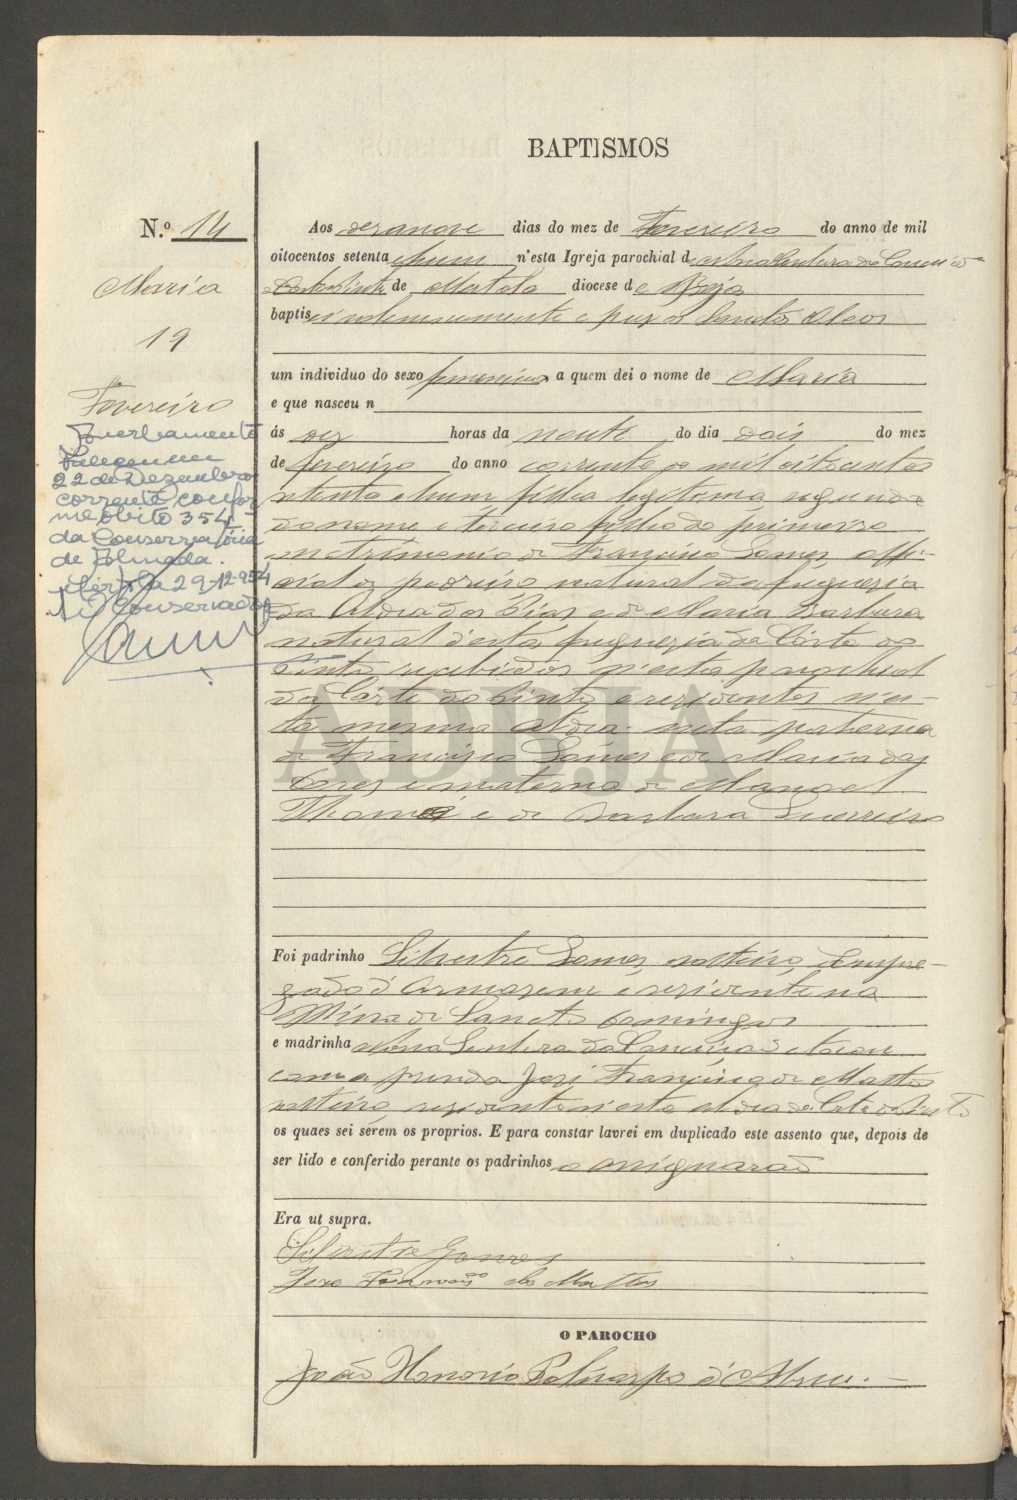 BAPTISMOS
N.º 14
Maria
19
Fevereiro
Averbamento
Faleceu em
22 de Dezembro
corrente confor
me óbito 354
da Conservatória
de Almada.
Mértola 29-12-954
O Conservador
Aos dezanove dias do mez de Fevereiro do anno de mil
oitocentos setenta e hum n'esta Igreja parochial de Nossa Senhora da Conceição
de Corte do Pinto de Mertola diocese de Beja
baptisei solemnemente e puz os Sanctos Oleos
um individuo do sexo femenino a quem dei o nome de Maria
e que nasceu n
ás dez horas da noute do dia dois do mez
de fevereiro do anno corrente de mil oitocentos
setenta e hum filha legitima segunda
do nome e terceiro filho do primeiro
matrimonio de Francisco Gomes offi-
cial de pedreiro natural da freguezia
da Aldea dos e de Maria Barbara
natural d'esta freguezia da Corte do
Pinto recebidos n'esta parochial
da Corte do Pinto e rezidentes n'es-
ta mesma Aldea: neta paterna
de Francisco Gomes e de Maria das
Dores e materna de Manoel
Thomé e de Barbara Guerreiro
Foi padrinho Silvestre Gomes, solteiro, Empre-
gado d'Armazem e rezidente na
Mina de Sancto Domingos
e madrinha Nossa Senhora da Conceição e tocou
com a prenda José Francisco de Mattos
solteiro, rezidente n'esta aldea de Corte do Pinto
os quaes sei sérem os proprios. E para constar lavrei em duplicado este assento que, depois de
ser lido e conferido perante os padrinhos o assignarão
Era ut supra.
Silvestre Gomes
Jose Francisco de Mattos
O PAROCHO
João Honorio Policarpo d'Abreu.
ADBJA